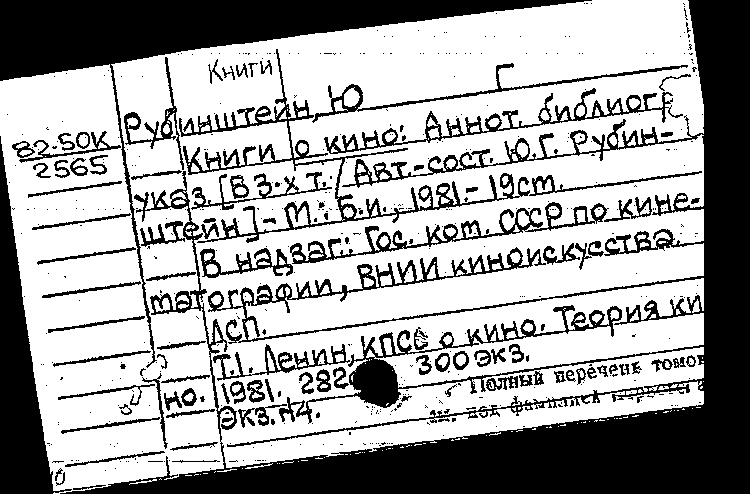 Книги
Рубинштейн, Ю Г
82-50К
2565
Книги о кино: Аннот. библиогр
указ. [В 3-х т. / Авт.-сост. Ю.Г. Рубин-
штейн] - М.: Б.и., 1981.- 19см.
В надзаг.: Гос. ком. СССР по кине-
матографии, ВНИИ киноискусства.
ДСП.
Т.1. Ленин, КПСС о кино. Теория ки
но. 1981. 282 300 экз.
Экз. №4.
Полный перечень томов
под фамилией первого а